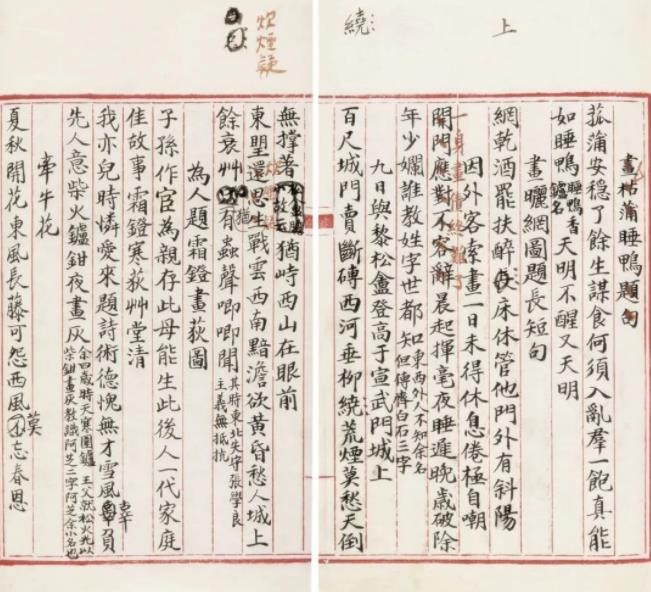 上
繞
畫菰蒲睡鴨題句
菰蒲安穩了餘生謀食何須入亂羣一飽真能
如睡鴨睡鴨香鑪名天明不醒又天明
畫曬網圖題長短句
網乾酒罷扶醉床休管他門外有斜陽
因外客索畫一日未得休息倦極自嘲
一身畫債終難了
開門應對不容辭晨起揮毫夜睡遲晚歲破除
年少嬾誰教姓字世都知東西外人不知余名但傳慣白石三字
九日與黎松盦登高于宣武門城上
百尺城門賣斷磚西河垂柳繞荒煙莫愁天倒
炊煙疑
無撐著猶峙西山在眼前
東望還思生戰雲西南黯澹欲黃昏愁人城上
餘衰艸猶有蟲聲唧唧聞其時東北失守張學良主義無抵抗
為人題霜鐙畫荻圖
子孫作官為親存此母能生此後人一代家庭
佳故事霜鐙寒荻艸堂清
我亦兒時憐愛來題詩術德愧無才雪風辜負
先人意柴火鑪鉗夜畫灰余四歲時天寒圍鑪王父就松火光以柴鉗畫灰教識阿芝二字阿芝余小名也
牽牛花
夏秋開花東風長藤可怨西風莫忘春恩